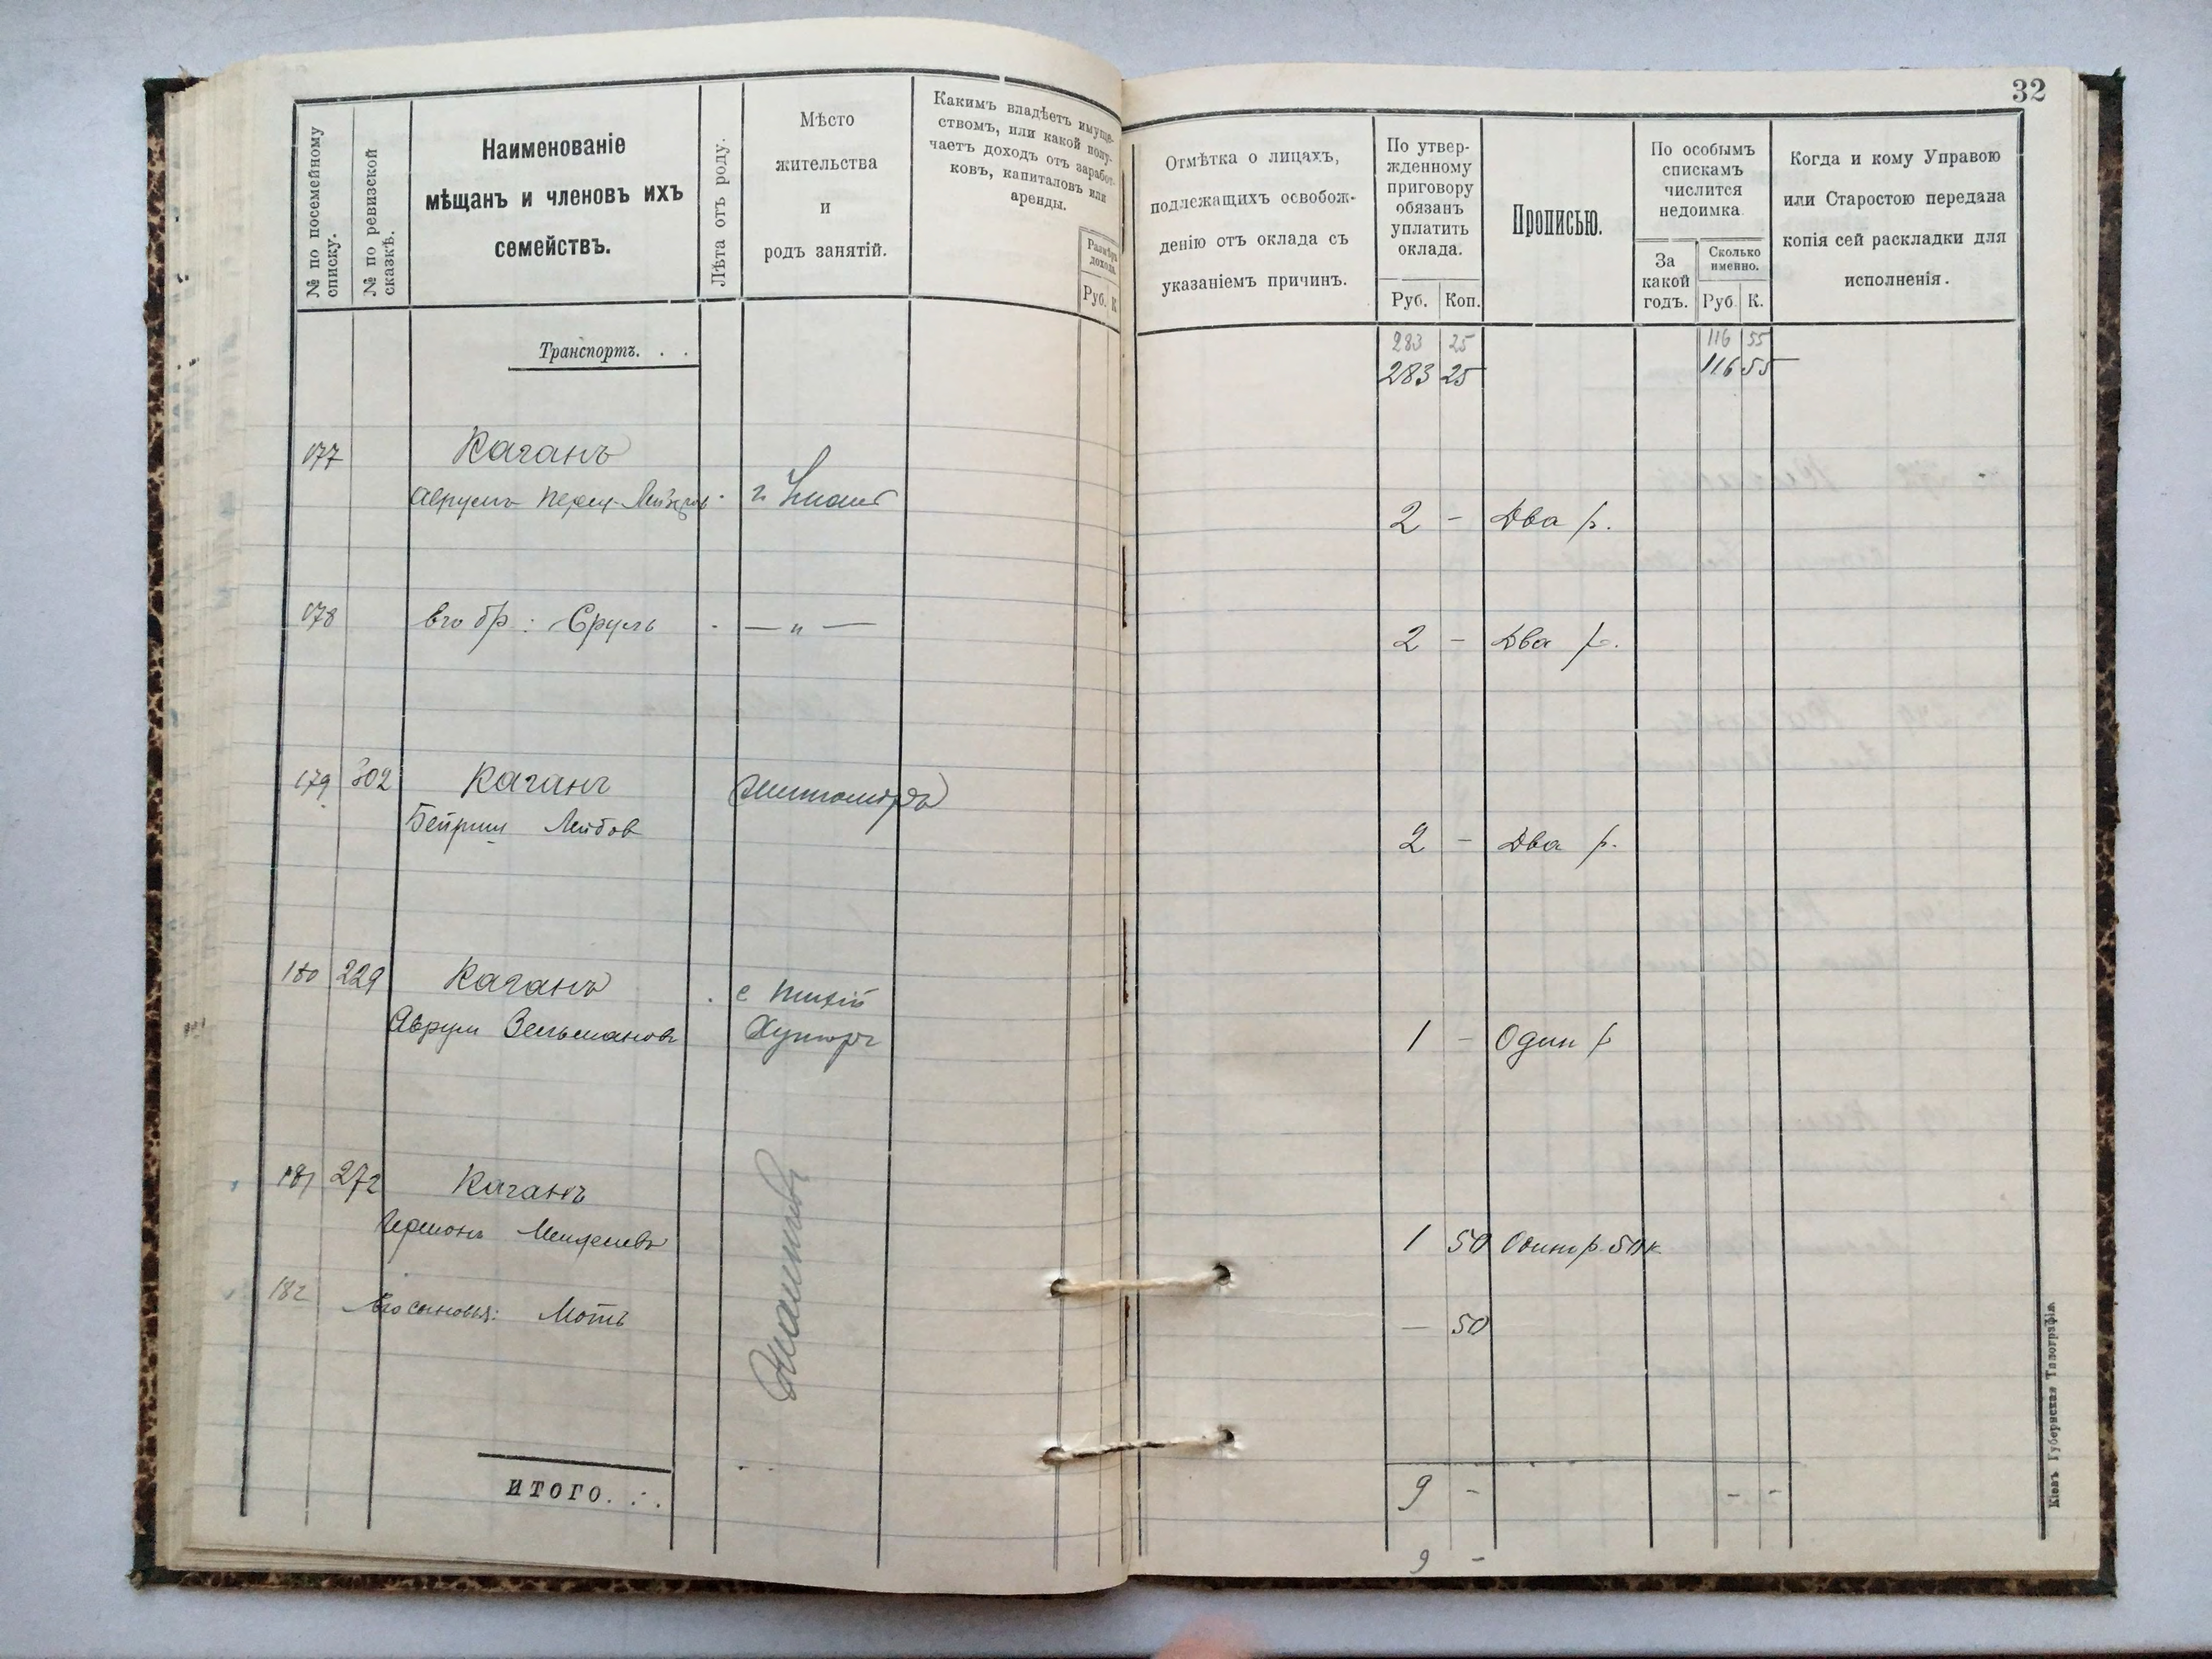 32
№ по посемейному списку.
№ по ревизской сказкѣ.
Наименованіе
мѣщанъ и членовъ ихъ
семействъ.
Лѣта отъ роду.
Мѣсто
жительства
и
родъ занятій.
Какимъ владѣетъ имуще-
ствомъ, или какой полу-
чаетъ доходъ отъ заработ-
ковъ, капиталовъ или
аренды.
Размѣръ
дохода.
Руб. К
Отмѣтка о лицахъ,
подлежащихъ освобож-
денію отъ оклада съ
указаніемъ причинъ.
По утвер-
жденному
приговору
обязанъ
уплатить
оклада.
Руб. Коп.
Прописью.
По особымъ
спискамъ
числится
недоимка
За
какой
годъ.
Сколько
именно.
Руб К.
Когда и кому Управою
или Старостою передана
копія сей раскладки для
исполненія.
Транспортъ. . .
283 25 116 55
283 25 116 55
177 Каганъ
Аврумъ Перец-Лейзеров г.
2 - Два р.
178 Его бр: Сруль - — " — 2 - Два р.
179 302 Каганъ Житомиръ
Бейриш Лейбов 2 - Два р.
180 229 Каганъ с Тихій
Аврум Зельмановъ Хуторъ 1 - Один р
181 272 Каганъ
Гершонъ Менделевъ 1 50 Одинъ р. 50 к
182 Его сыновья: Моть — 50
ИТОГО. . . 9 - - -
9 -
Кіевъ Губернская Типографія.